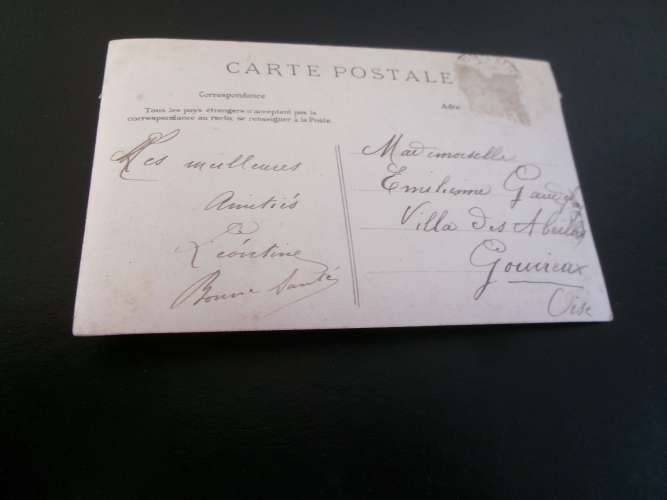 CARTE POSTALE
Correspondance
Tous les pays étrangers n'acceptant pas la
correspondance au recto, se renseigner à la Poste.
Adre
Mes meilleures
Amitiés
de
Léontine
Bonne Santé
Mademoiselle
Emilienne
Villa des
Gouvieux
Oise